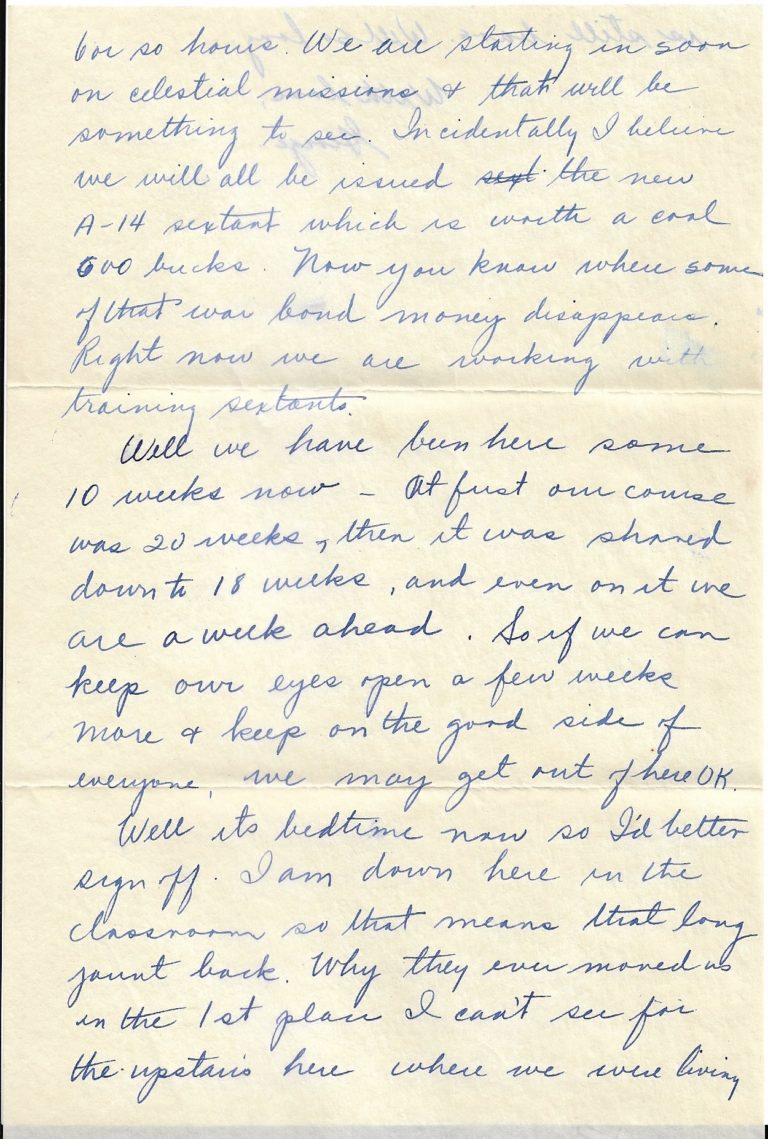 6 or so hours. We are starting in soon
on celestial missions & that will be
something to see. Incidentally I believe
we will all be issued sext the new
A-14 sextant which is worth a cool
600 bucks. Now you know where some
of that war bond money disappears.
Right now we are working with
training sextants.
Well we have been here some
10 weeks now - At first our course
was 20 weeks, then it was shaved
down to 18 weeks, and even on it we
are a week ahead. So if we can
keep our eyes open a few weeks
more & keep on the good side of
everyone, we may get out of here OK.
Well its bedtime now so I'd better
sign off. I am down here in the
classroom so that means that long
jaunt back. Why they ever moved us
in the 1st place I can't see for
the upstairs here where we were living